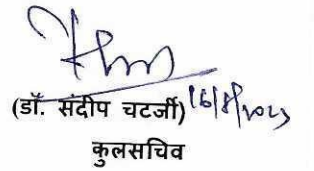 (डॉ. संदीप चटर्जी) 16/8/2023
कुलसचिव